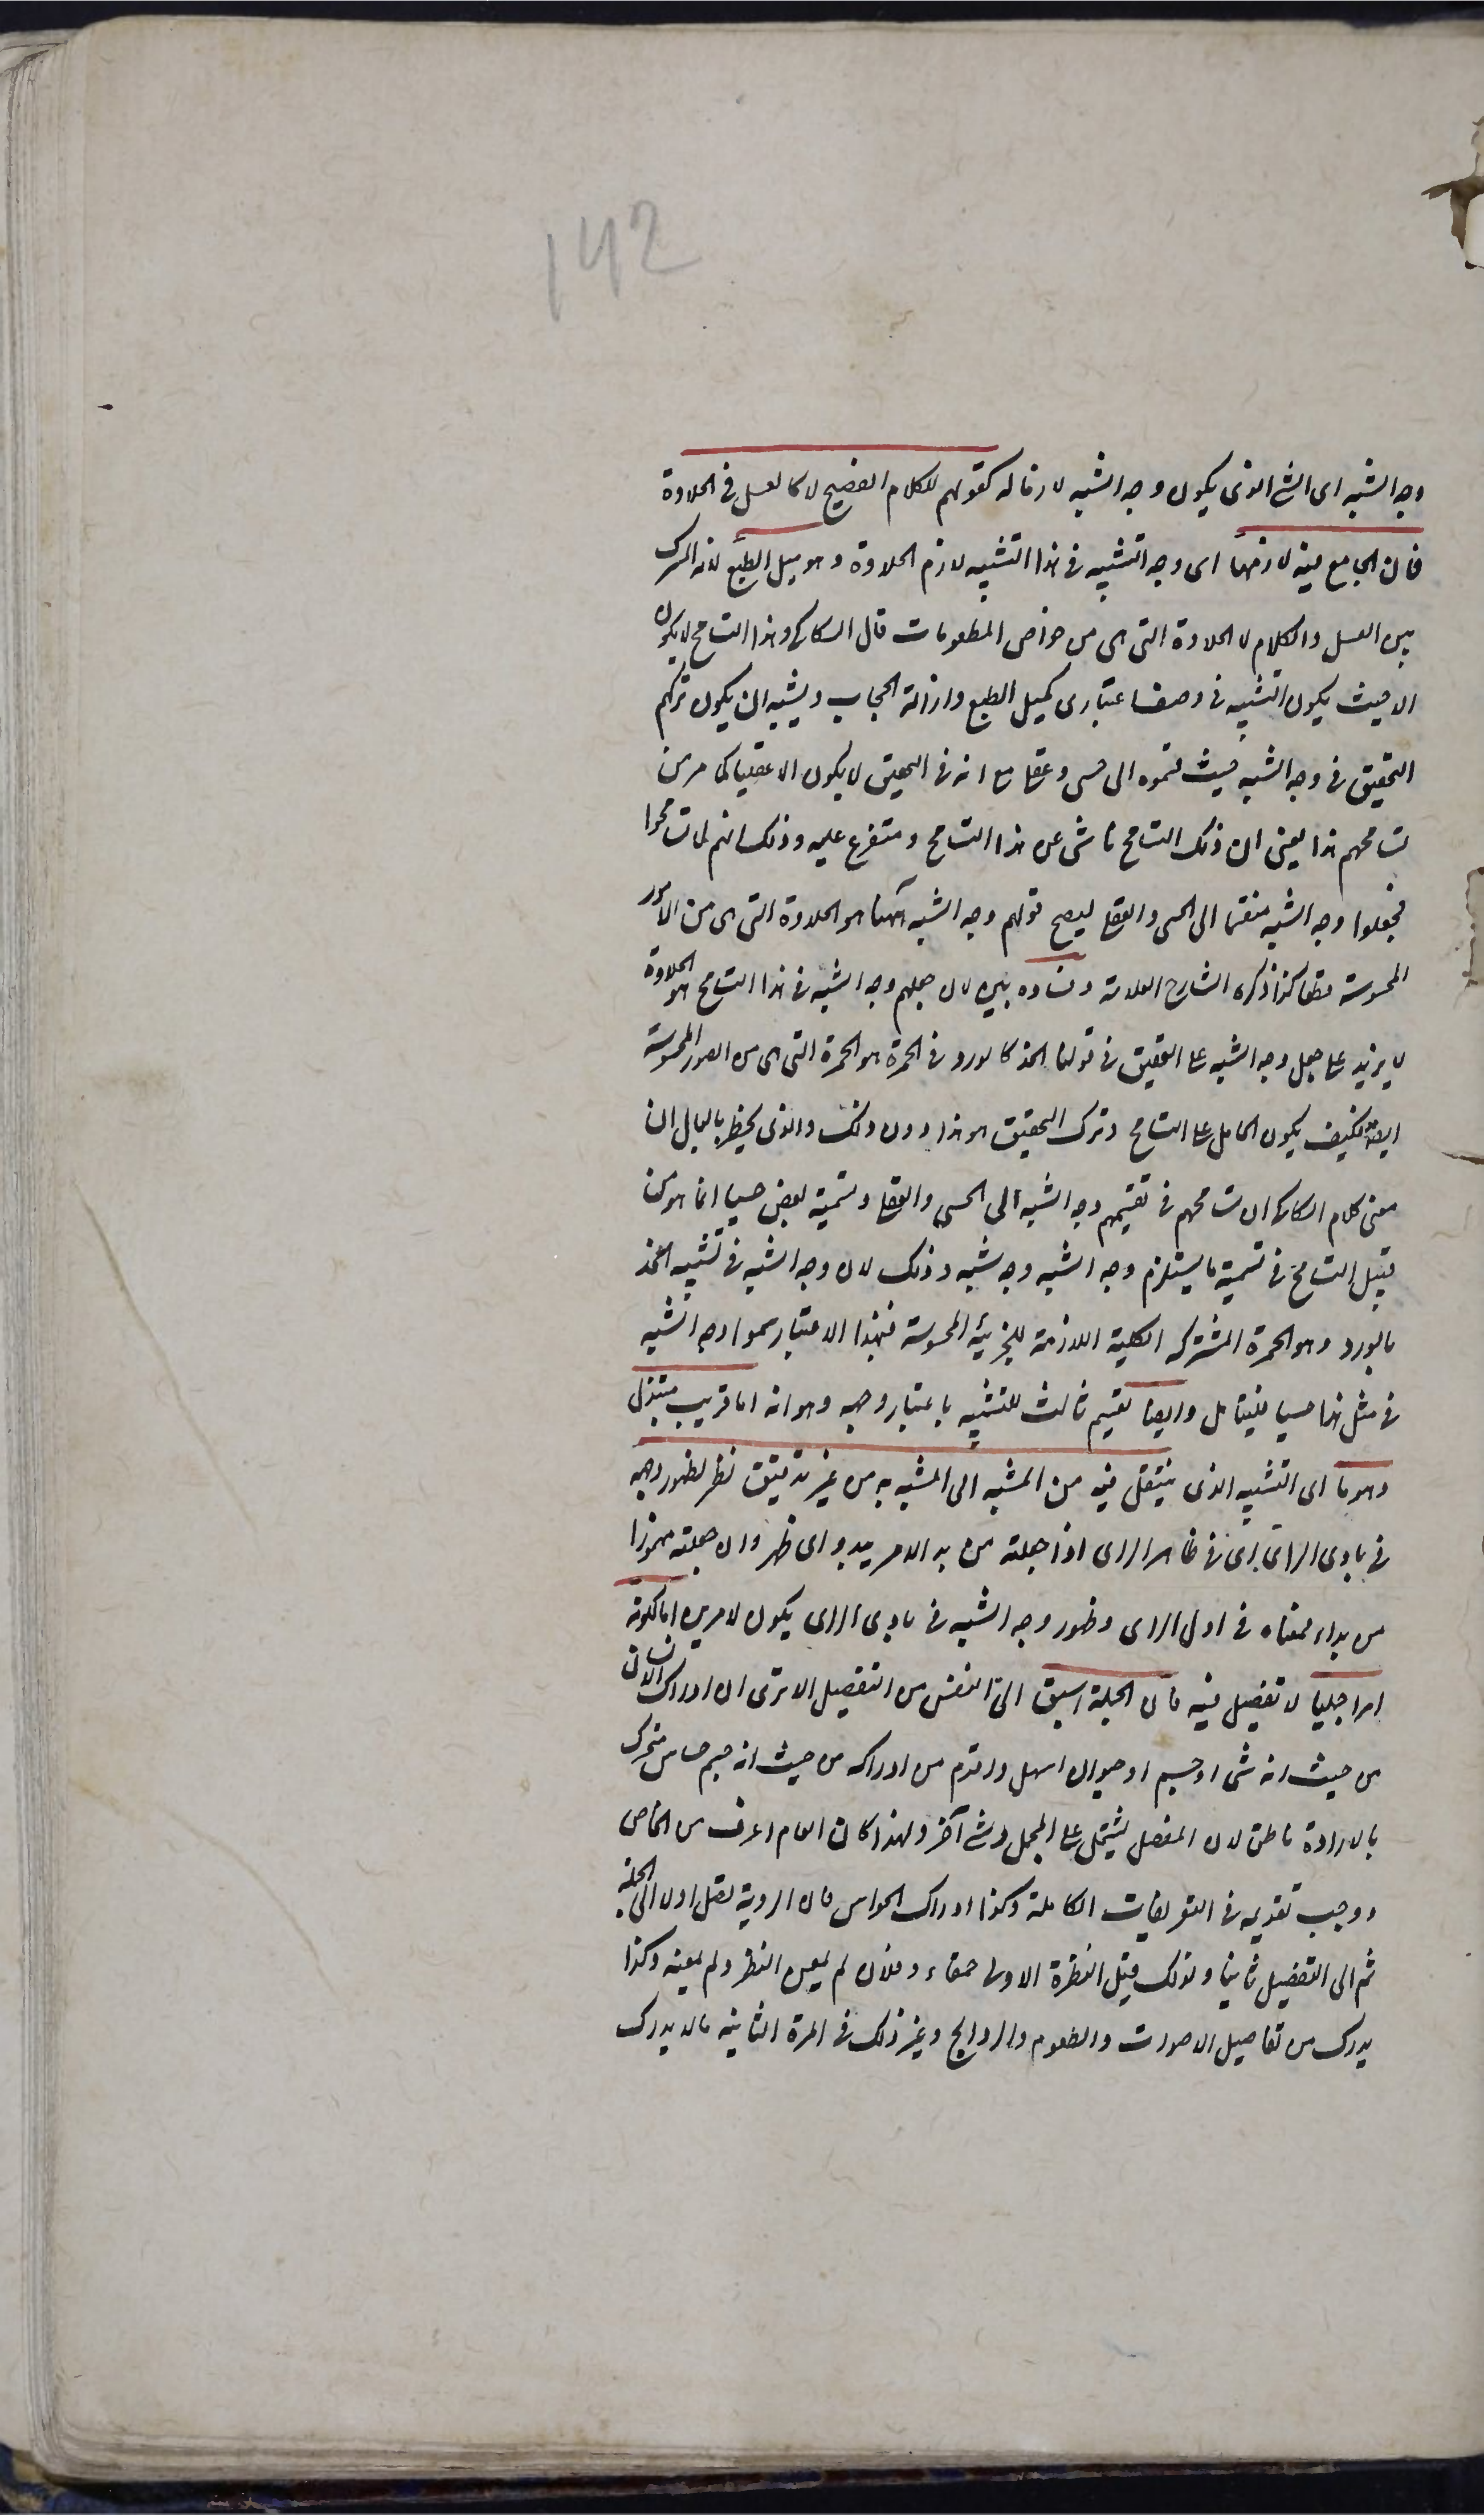 142
وجه الشبه اى الشئ الذى يكون وجه الشبه لازما له كقولهم للكلام الفصيح لا كالعسل فى الحلاوة
فان الجامع فيه لازمها اى وجه التشبيه فى هذا التشبيه لازم الحلاوة وهو ميل الطبع لانه المشترك
بين العسل والكلام لا الحلاوة التى هى من خواص المطعومات قال السكاكى وهذا التسامح لا يكون
الا حيث يكون التشبيه فى وصف اعتبارى كميل الطبع وازالة الحجاب ويشبه ان يكون تركهم
التحقيق فى وجه الشبه حيث قسموه الى حسى وعقلى مع انه فى التحقيق لا يكون الا عقليا كما مر من
تسامحهم هذا يعنى ان ذلك التسامح ناشى عن هذا التسامح ومتفرع عليه وذلك انهم لما تسامحوا
فجعلوا وجه الشبه منقسما الى الحسى والعقلى ليصح قولهم وجه الشبه ههنا هو الحلاوة التى هى من الامور
المحسوسة قطعا كذا ذكره الشارح العلامة وفساده بين لان جعلهم وجه الشبه فى هذا التسامح هو الحلاوة
لا يزيد على جعل وجه الشبه على التحقيق فى قولنا الخد كالورد فى الحمرة هو الحمرة التى هى من الصور المحسوسة
ايضا فكيف يكون الحامل على التسامح وترك التحقيق هو هذا دون ذلك والذى يخطر بالبال ان
معنى كلام السكاكى ان تسامحهم فى تقسيمهم وجه الشبه الى الحسى والعقلى وتسمية بعض حسيا انما هو من
قبيل التسامح فى تسمية ما يستلزم وجه الشبه وجه شبه وذلك لان وجه الشبه فى تشبيه الخد
بالورد وهو الحمرة المشتركة الكلية اللازمة للجزئية المحسوسة فبهذا الاعتبار سموا وجه الشبه
فى مثل هذا حسيا فليتامل وايضا تقسيم ثالث للتشبيه باعتبار وجهه وهو انه اما قريب مبتذل
وهو ما اى التشبيه الذى ينتقل فيه من المشبه الى المشبه به من غير تدقيق نظر لظهور وجهه
فى بادى الراى اى فى ظاهر الراى اذا جعلته من بدا الامر يبدو اى ظهر وان جعلته مهموزا
من بداء فمعناه فى اول الراى وظهور وجه الشبه فى بادى الراى يكون لامرين اما لكونه
امرا جليا لا تفصيل فيه فان الجملة اسبق الى النفس من التفصيل الا ترى ان ادراك الانسان
من حيث انه شى او جسم او حيوان اسهل واقدم من ادراكه من حيث انه جسم حساس متحرك
بالارادة ناطق لان المفصل يشتمل على المجمل وشئ آخر ولهذا كان العام اعرف من الخاص
ووجب تقديمه فى التعريفات الكاملة وكذا ادراك الحواس فان الروية تصل اولا الى الجملة
ثم الى التفصيل ثانيا ولذلك قيل النظرة الاولى حمقاء وفلان لم يمعن النظر ولم يمعنه وكذا
يدرك من تفاصيل الاصوات والطعوم والروايح وغير ذلك فى المرة الثانية ما لا يدرك